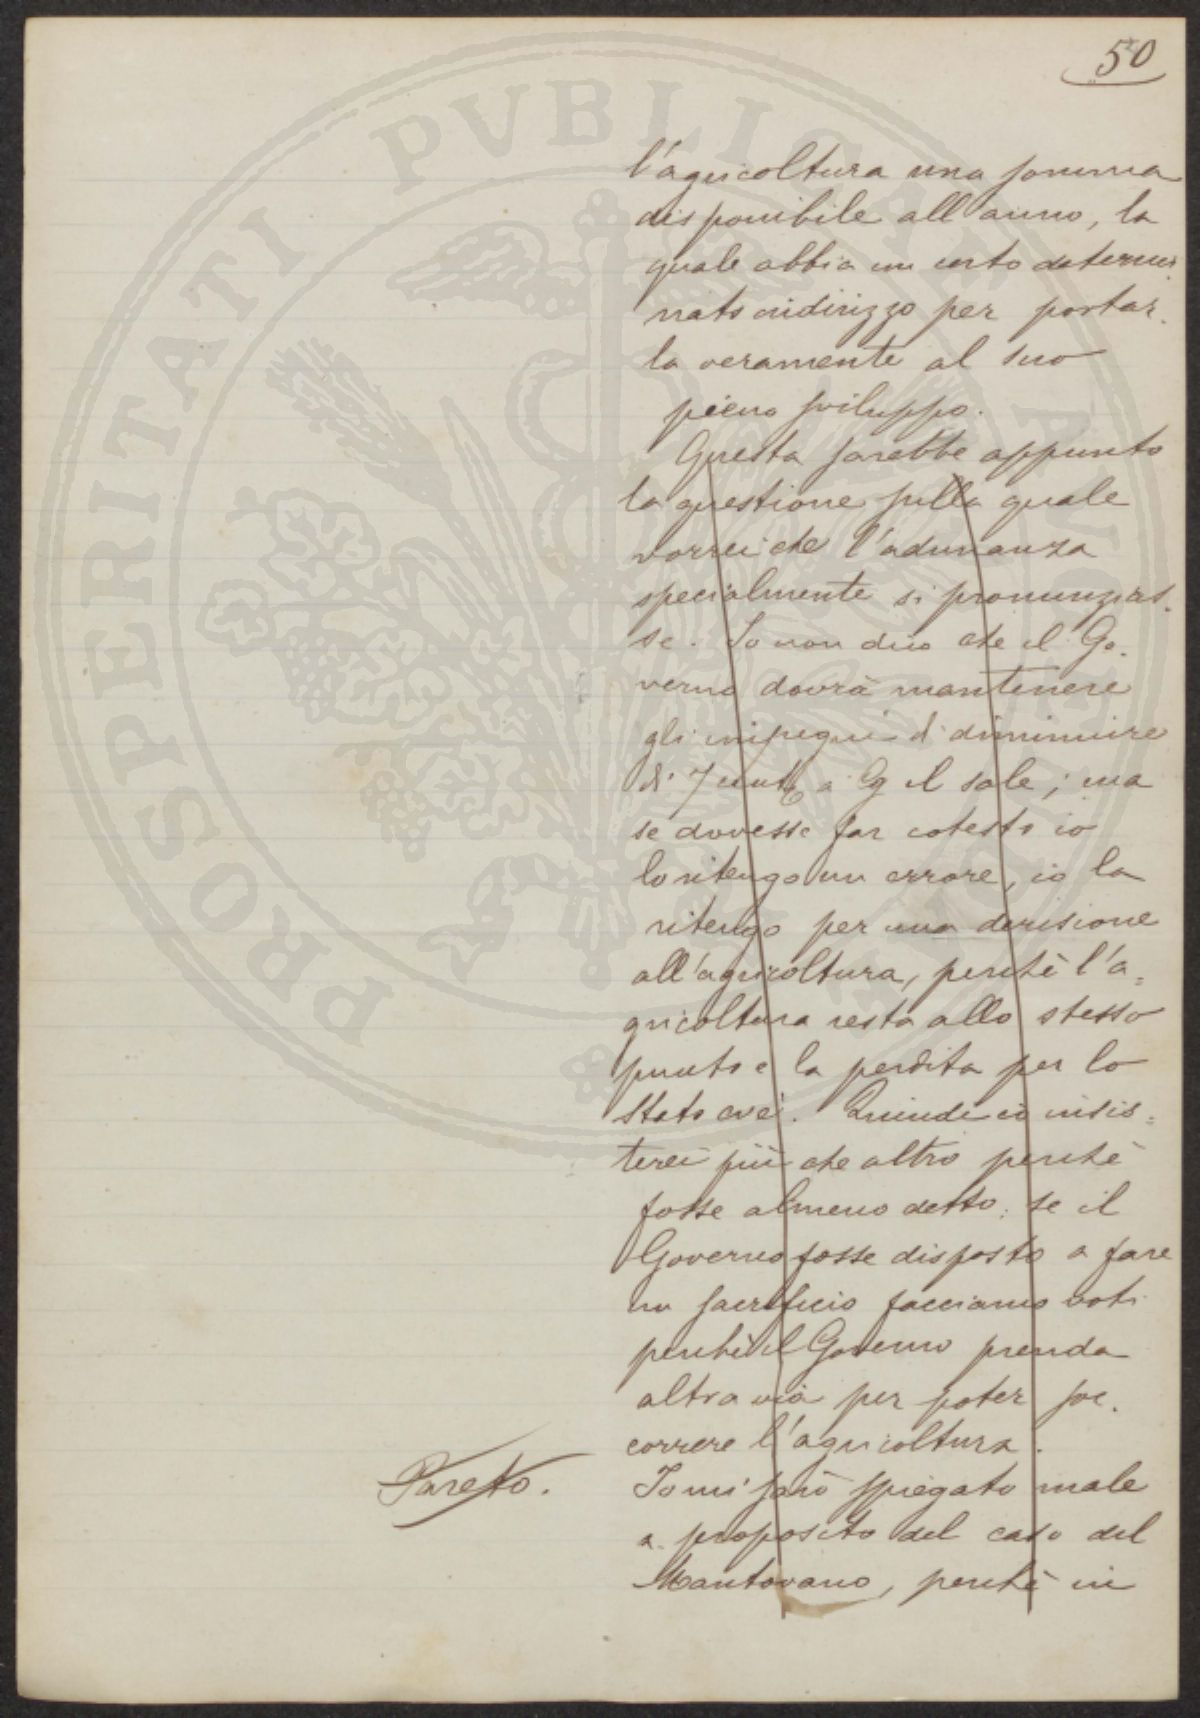 50
l'agricoltura una somma
disponibile all'anno, la
quale abbia un certo determi-
nato indirizzo per portar-
la veramente al suo
pieno sviluppo.
Questa sarebbe appunto
la questione sulla quale
vorrei che l'adunanza
specialmente si pronunzias-
se. Io non dico che il Go-
verno dovrà mantenere
gli impegni di diminuire
di 7 a il sale; ma
se dovesse far cotesto io
lo ritengo un errore, io la
ritengo per una derisione
all'agricoltura, perchè l'a=
gricoltura resta allo stesso
punto e la perdita per lo
Stato c'è. Quindi io insis=
terei più che altro perchè
fosse almeno detto: se il
Governo fosse disposto a fare
un sacrificio facciamo voti
perchè il Governo prenda
altra via per poter soc-
correre l'agricoltura.
Pareto. Io mi sarò spiegato male
a proposito del caso del
Mantovano, perchè in
PROSPERITATI PVBLICAE